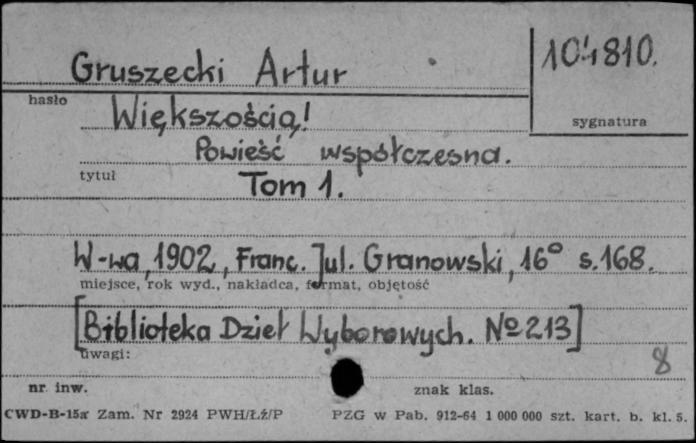 Gruszecki Artur
104810.
hasło
Większością!
sygnatura
Powieść współczesna.
tytuł
Tom 1.
W-wa, 1902, Franc. Jul. Granowski, 16° s. 168.
miejsce, rok wyd., nakładca, format, objętość
[Biblioteka Dzieł Wyborowych. № 213]
uwagi:
8
nr inw.
znak klas.
CWD-B-15a Zam. Nr 2924 PWH/Łź/P PZG w Pab. 912-64 1 000 000 szt. kart. b. kl. 5.